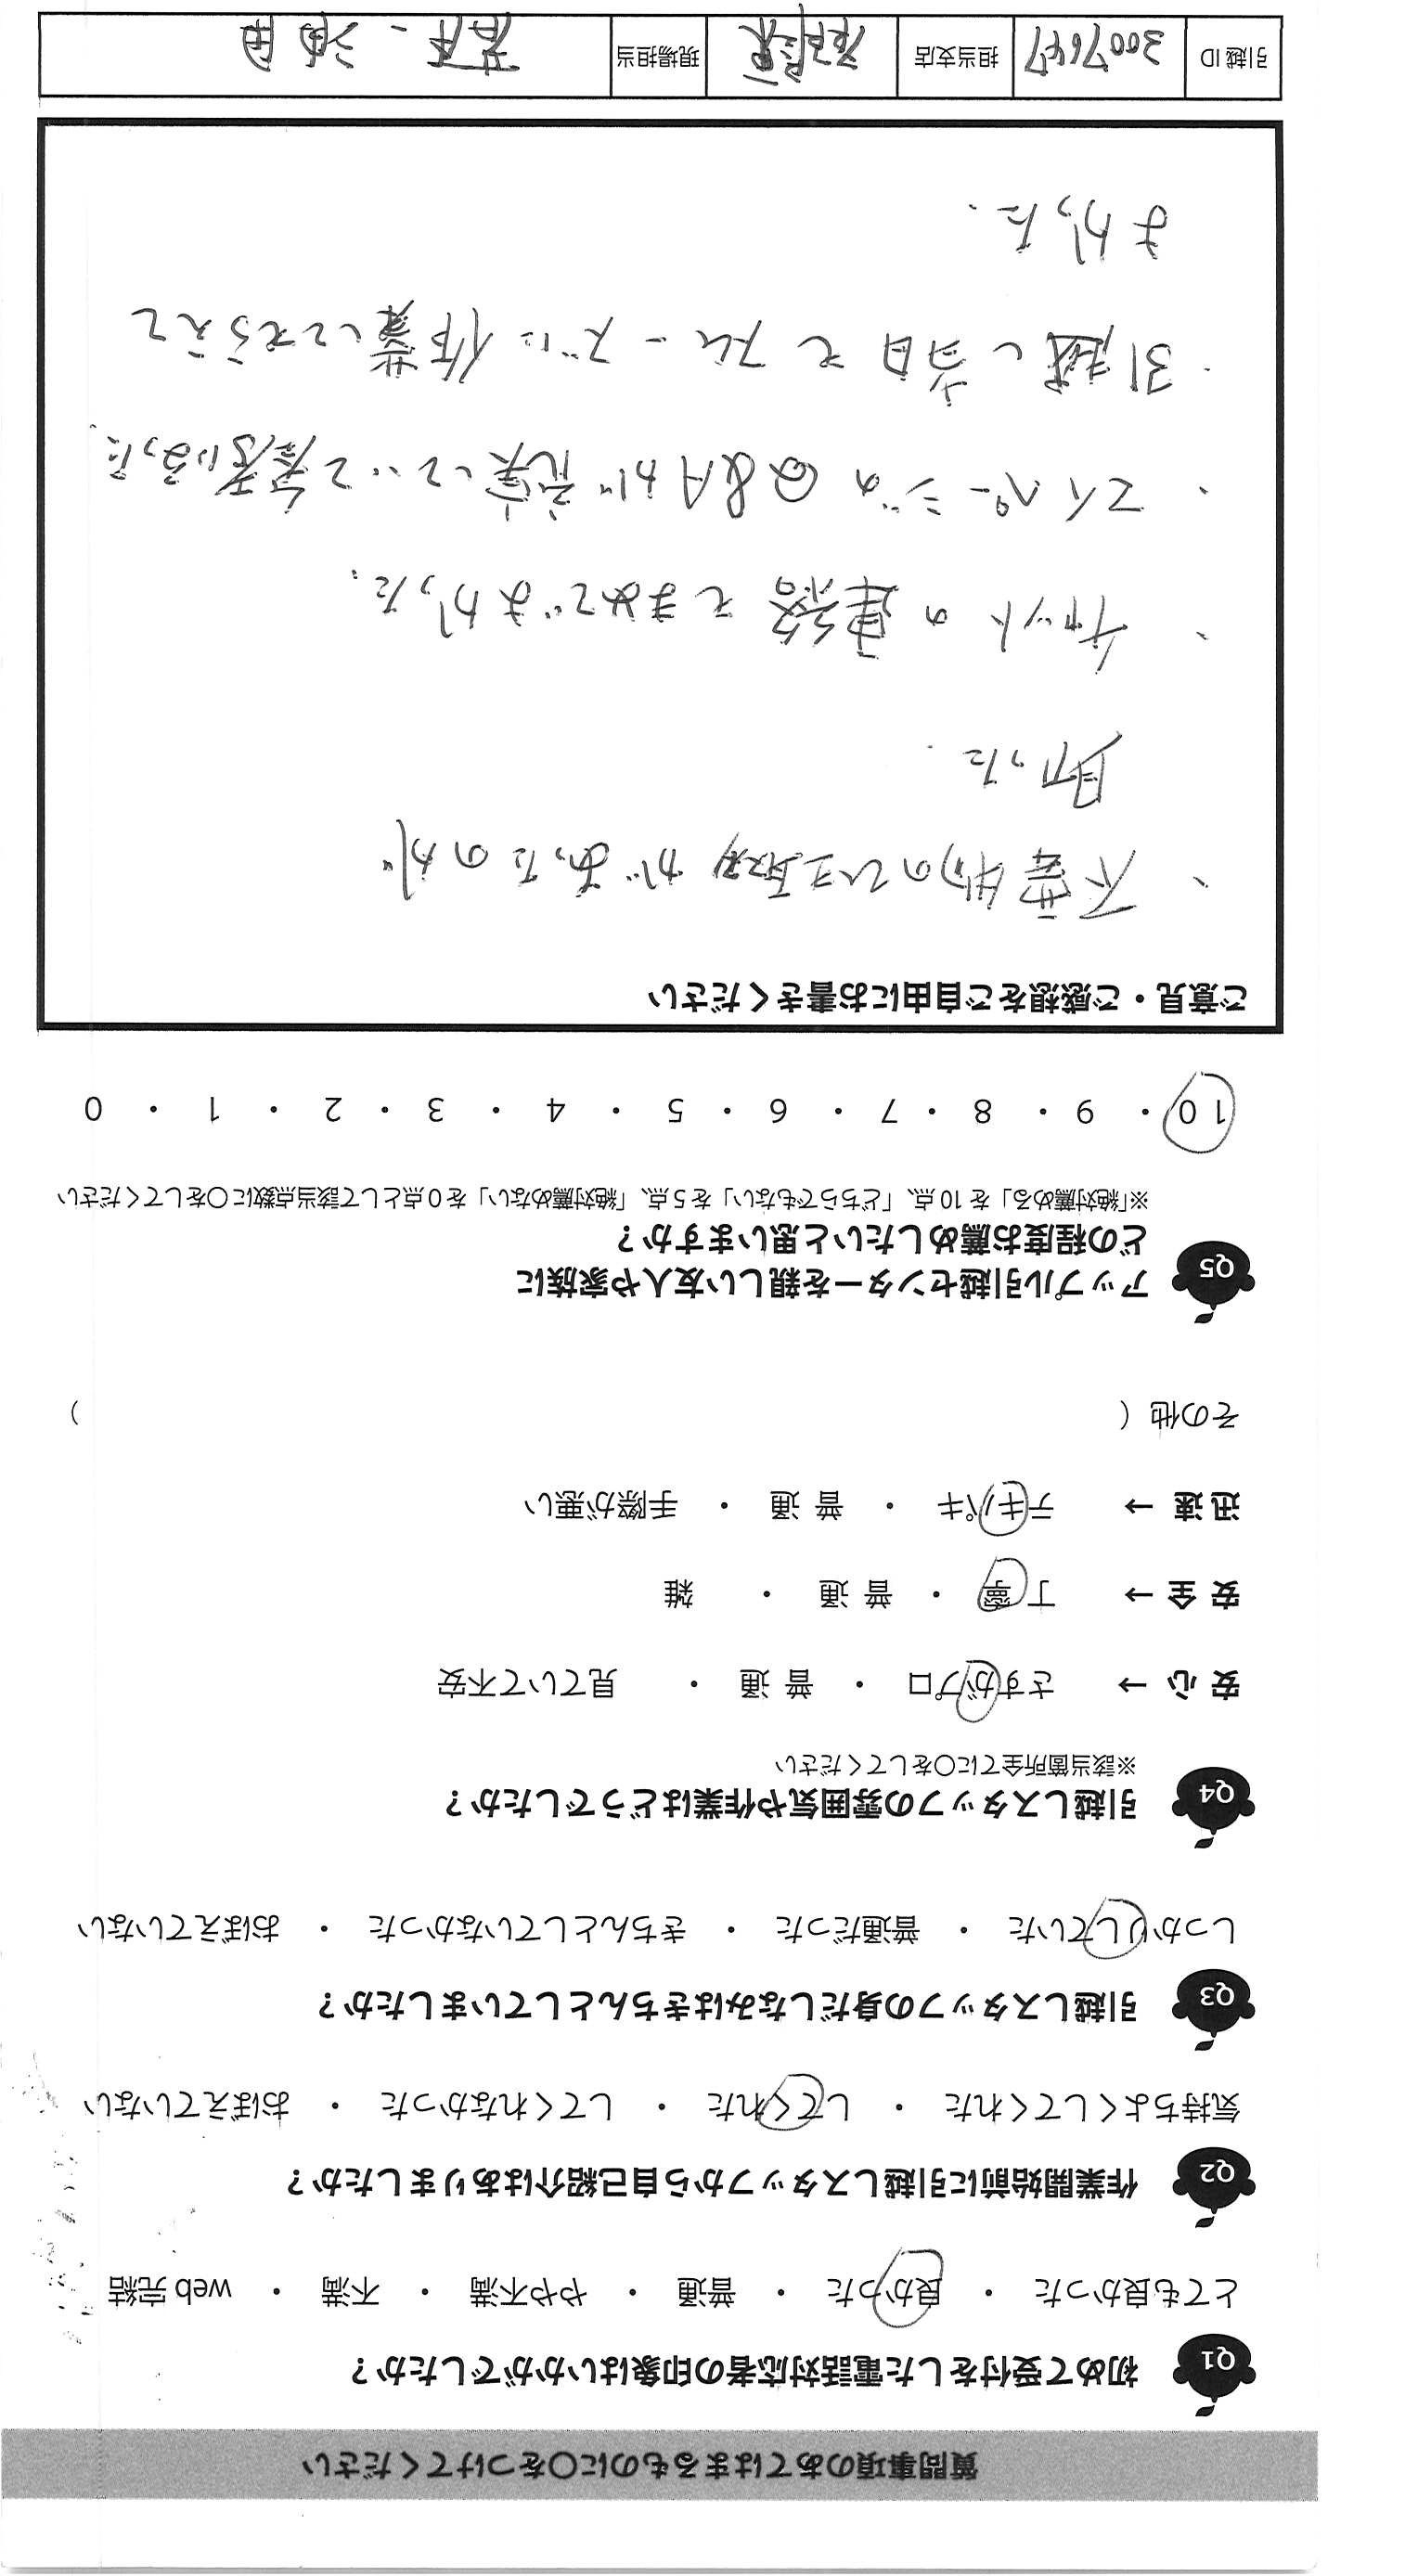 質問事項のあてはまるものに○をつけてください
Q1 初めて受付をした電話対応者の印象はいかがでしたか？
とても良かった ・ 良かった ・ 普通 ・ やや不満 ・ 不満 ・ web 完結
Q2 作業開始前に引越しスタッフから自己紹介はありましたか？
気持ちよくしてくれた ・ してくれた ・ してくれなかった ・ おぼえていない
Q3 引越しスタッフの身だしなみはきちんとしていましたか？
しっかりしていた ・ 普通だった ・ きちんとしていなかった ・ おぼえていない
Q4 引越しスタッフの雰囲気や作業はどうでしたか？
※該当箇所全てに○をしてください
安 心 → さすがプロ ・ 普 通 ・ 見ていて不安
安 全 → 丁 寧 ・ 普 通 ・ 雑
迅 速 → テキパキ ・ 普 通 ・ 手際が悪い
その他（ ）
Q5 アップル引越センターを親しい友人や家族に
どの程度お薦めしたいと思いますか？
※「絶対薦める」を 10 点、「どちらでもない」を 5 点、「絶対薦めない」を 0 点として該当点数に○をしてください
10 ・ 9 ・ 8 ・ 7 ・ 6 ・ 5 ・ 4 ・ 3 ・ 2 ・ 1 ・ 0
ご意見・ご感想をご自由にお書きください
・不要物の引取があったのが
助った.
・チャットの連絡もまめでよかった.
・マイページのQ&Aが充実していて参考になった.
・引越し当日もスムーズに作業してもらえて
よかった.
引越 ID 3007647 担当支店 現場担当